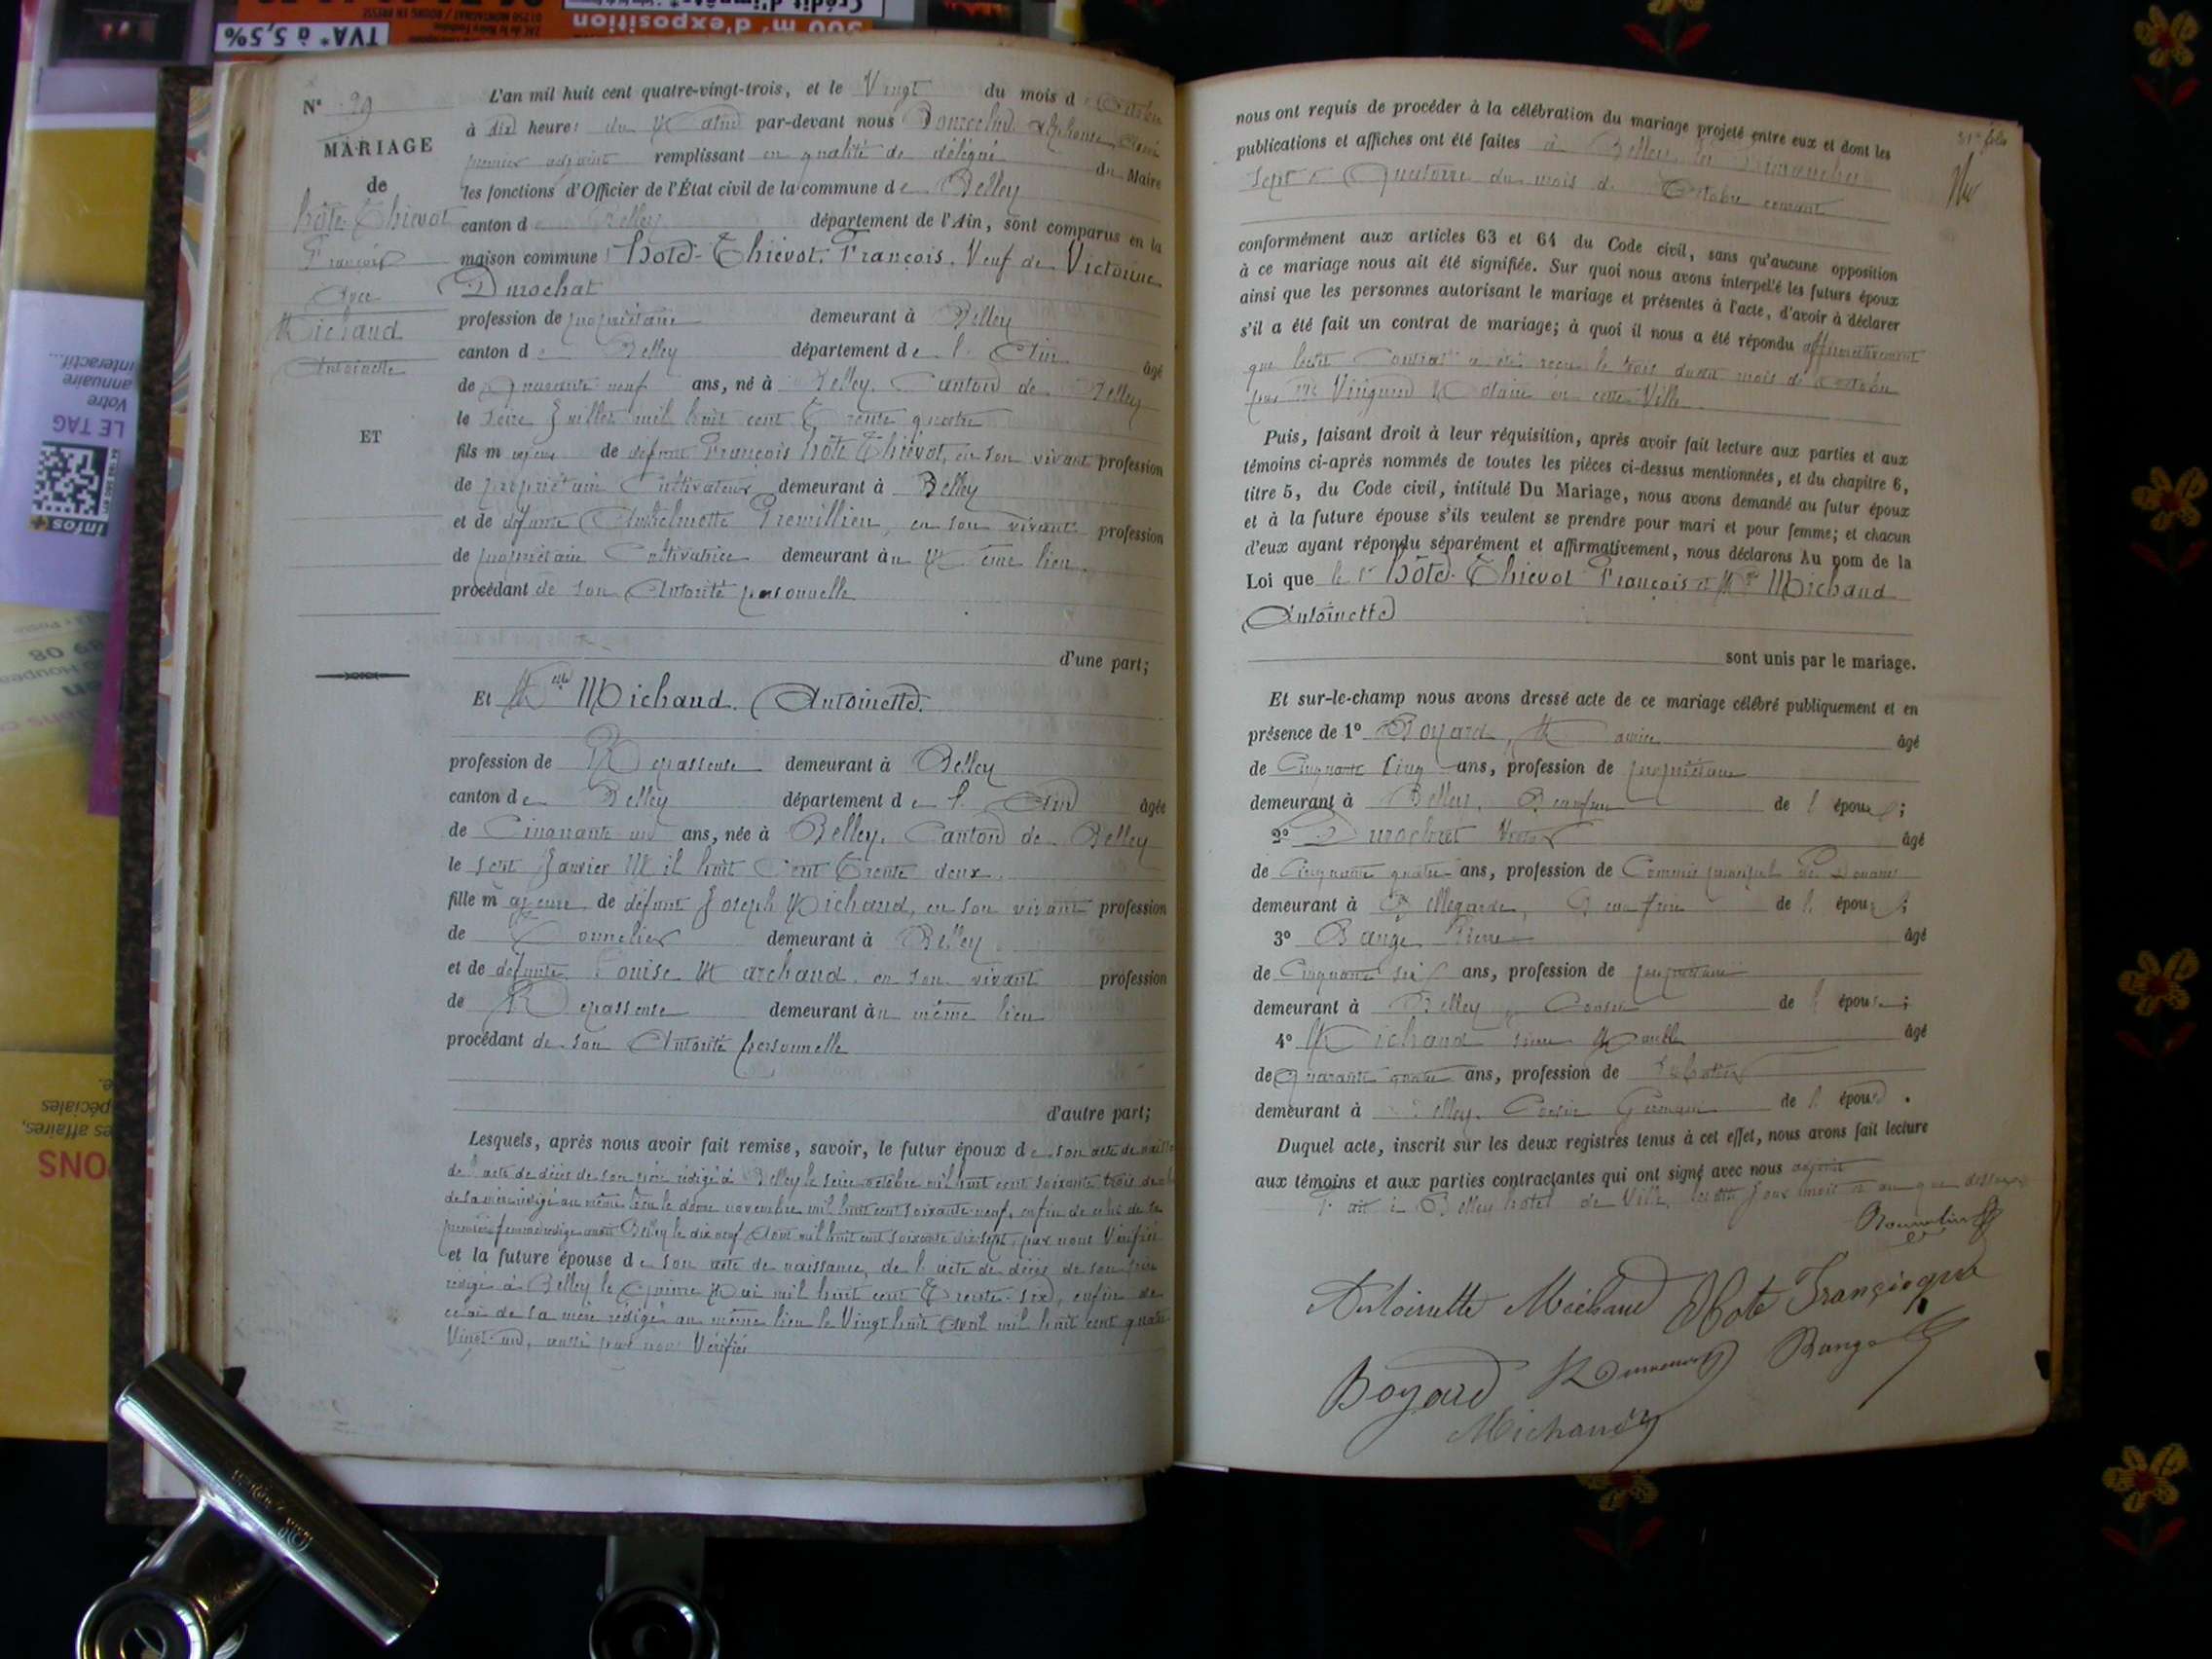 Crédit d'impôts*
300 m² d'exposition
TVA* à 5,5%
Votre
annuaire
interactif...
LE TAG
Infos+
N° 29
MARIAGE
de
hôte-Thievot
François
Avec
Michaud
Antoinette
ET
L'an mil huit cent quatre-vingt-trois, et le Vingt du mois d'Octobre
à dix heures du Matin par-devant nous
premier adjoint remplissant en qualité de délégué du Maire
les fonctions d'Officier de l'État civil de la commune de Belley
canton de Belley département de l'Ain, sont comparus en la
maison commune hôte-Thievot. François. Veuf de Victorine
Durochat
profession de propriétaire demeurant à Belley
canton de Belley département de l'Ain âgé
de Quarante neuf ans, né à Belley. Canton de Belley
le seize Juillet mil huit cent Trente quatre
fils majeur de défunt François hôte Thievot, en son vivant profession
de propriétaire Cultivateur demeurant à Belley
et de défunte Anthelmette Premillieu, en son vivant profession
de propriétaire Cultivatrice demeurant au Même lieu.
procédant de son Autorité personnelle
d'une part;
Et Melle Michaud. Antoinette.
profession de Repasseuse demeurant à Belley
canton de Belley département de l'Ain âgée
de Cinquante un ans, née à Belley. Canton de Belley
le sept Janvier Mil huit Cent Trente deux.
fille majeure de défunt Joseph Michaud, en son vivant profession
de Tonnelier demeurant à Belley
et de défunte Louise Marchand. en son vivant profession
de Repasseuse demeurant au même lieu
procédant de son Autorité personnelle
d'autre part;
Lesquels, après nous avoir fait remise, savoir, le futur époux de son acte de naissance
de l'acte de décès de son père rédigé à Belley le seize octobre mil huit cent soixante trois de celui
de sa mère rédigé au même lieu le douze novembre mil huit cent soixante neuf, enfin de celui de sa
première femme rédigé aussi Belley le dix neuf Aout mil huit cent soixante dix sept, par nous Vérifiés
et la future épouse de son acte de naissance, de l'acte de décès de son père
rédigé à Belley le Quinze Mai mil huit cent Trente-six, enfin de
celui de sa mère rédigé au même lieu le Vingt huit Avril mil huit cent quatre
Vingt-un, aussi par nous Vérifiés
nous ont requis de procéder à la célébration du mariage projeté entre eux et dont les
publications et affiches ont été faites à Belley les Dimanches
Sept & Quatorze du mois d'Octobre courant
conformément aux articles 63 et 64 du Code civil, sans qu'aucune opposition
à ce mariage nous ait été signifiée. Sur quoi nous avons interpellé les futurs époux
ainsi que les personnes autorisant le mariage et présentes à l'acte, d'avoir à déclarer
s'il a été fait un contrat de mariage; à quoi il nous a été répondu affirmativement
que ledit Contrat a été reçu le trois dudit mois d'Octobre
par Me Notaire en cette Ville
Puis, faisant droit à leur réquisition, après avoir fait lecture aux parties et aux
témoins ci-après nommés de toutes les pièces ci-dessus mentionnées, et du chapitre 6,
titre 5, du Code civil, intitulé Du Mariage, nous avons demandé au futur époux
et à la future épouse s'ils veulent se prendre pour mari et pour femme; et chacun
d'eux ayant répondu séparément et affirmativement, nous déclarons Au nom de la
Loi que le Sr hôte-Thievot François & Melle Michaud
Antoinette
sont unis par le mariage.
Et sur-le-champ nous avons dressé acte de ce mariage célébré publiquement et en
présence de 1° Boyard, âgé
de Cinquante Cinq ans, profession de propriétaire
demeurant à Belley, Beaufrère de l'époux;
2° Durochat Victor âgé
de Cinquante quatre ans, profession de Commis principal des Douanes
demeurant à Bellegarde, Beaufrère de l'époux;
3° Bange Pierre âgé
de Cinquante six ans, profession de propriétaire
demeurant à Belley, Cousin de l'épouse;
4° Michaud âgé
de Quarante quatre ans, profession de Sabotier
demeurant à Belley. Cousin Germain de l'épouse.
Duquel acte, inscrit sur les deux registres tenus à cet effet, nous avons fait lecture
aux témoins et aux parties contractantes qui ont signé avec nous adjoint
Fait à Belley hôtel de Ville, les dits Jour mois & an que dessus
Antoinette Michaud Hote François
Boyard Bange
Michaud